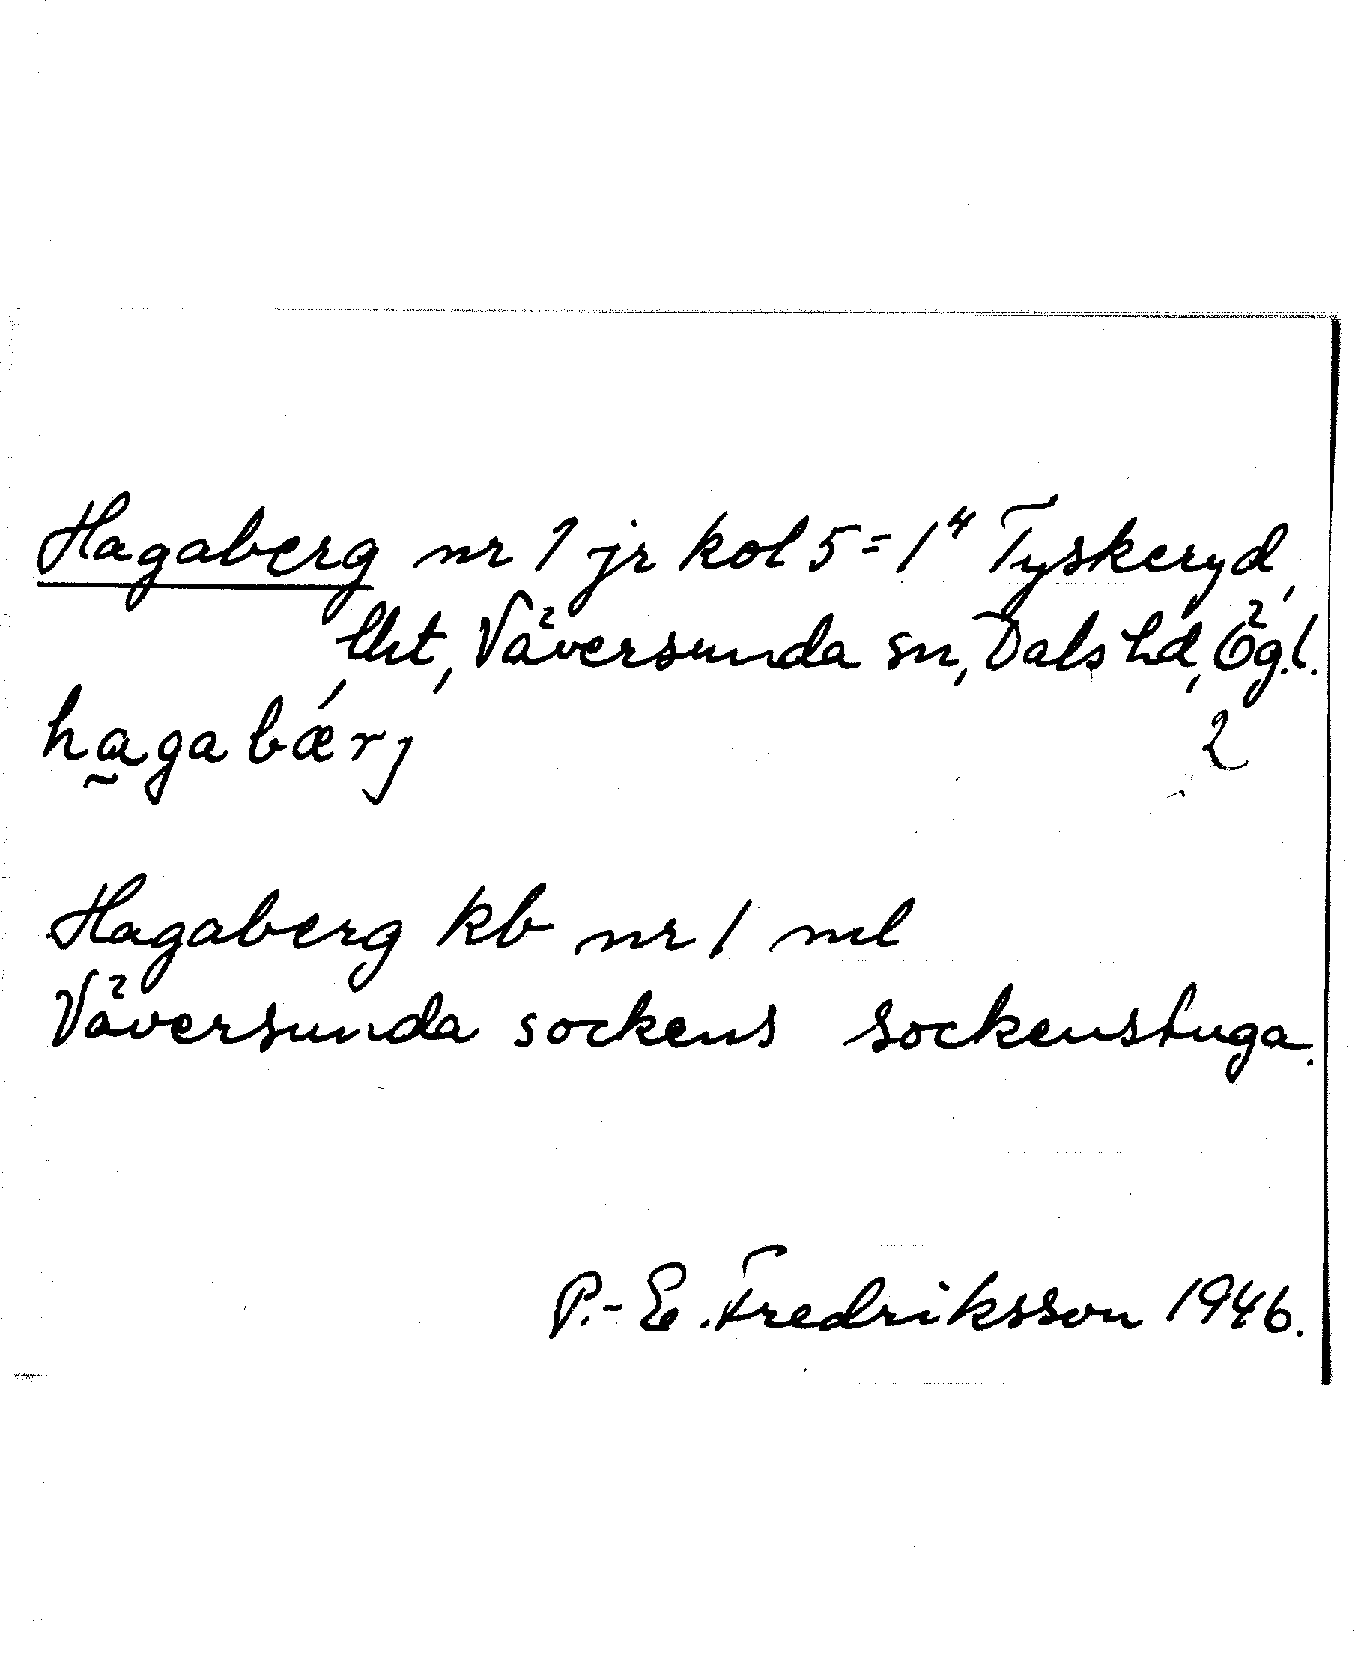 Hagaberg nr 1 jr kol 5 = 1⁴ Tyskeryd,
lht, Väversunda sn, Dals hd, Ög.l.
hagabǽrj 2
Hagaberg kb nr 1 ml
Väversunda sockens sockenstuga.
P.-E. Fredriksson 1946.